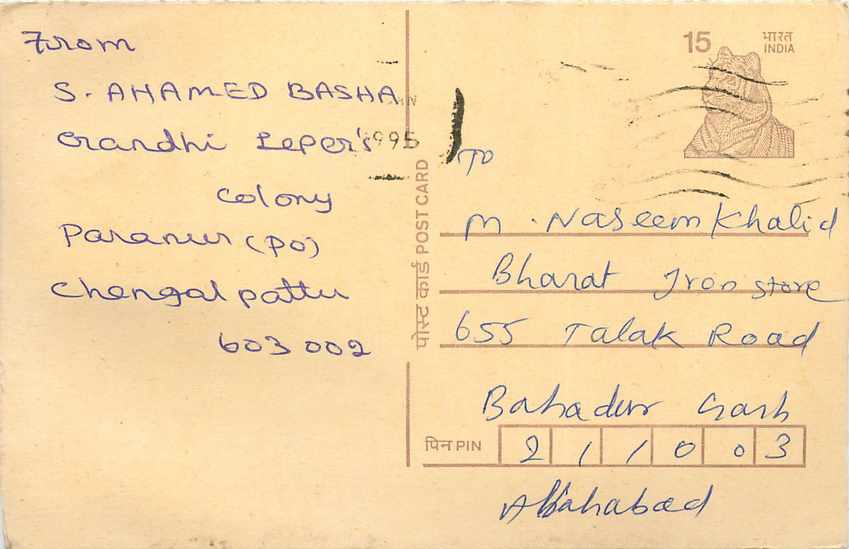 From
S. AHAMED BASHA
Gandhi Leper's
Colony
Paranur (PO)
Chengalpattu
603 002
1995
पोस्ट कार्ड POST CARD
15
भारत
INDIA
TO
M. Naseem Khalid
Bharat Iron store
655 Talak Road
Bahadur Garh
पिन PIN 211003
Allahabad